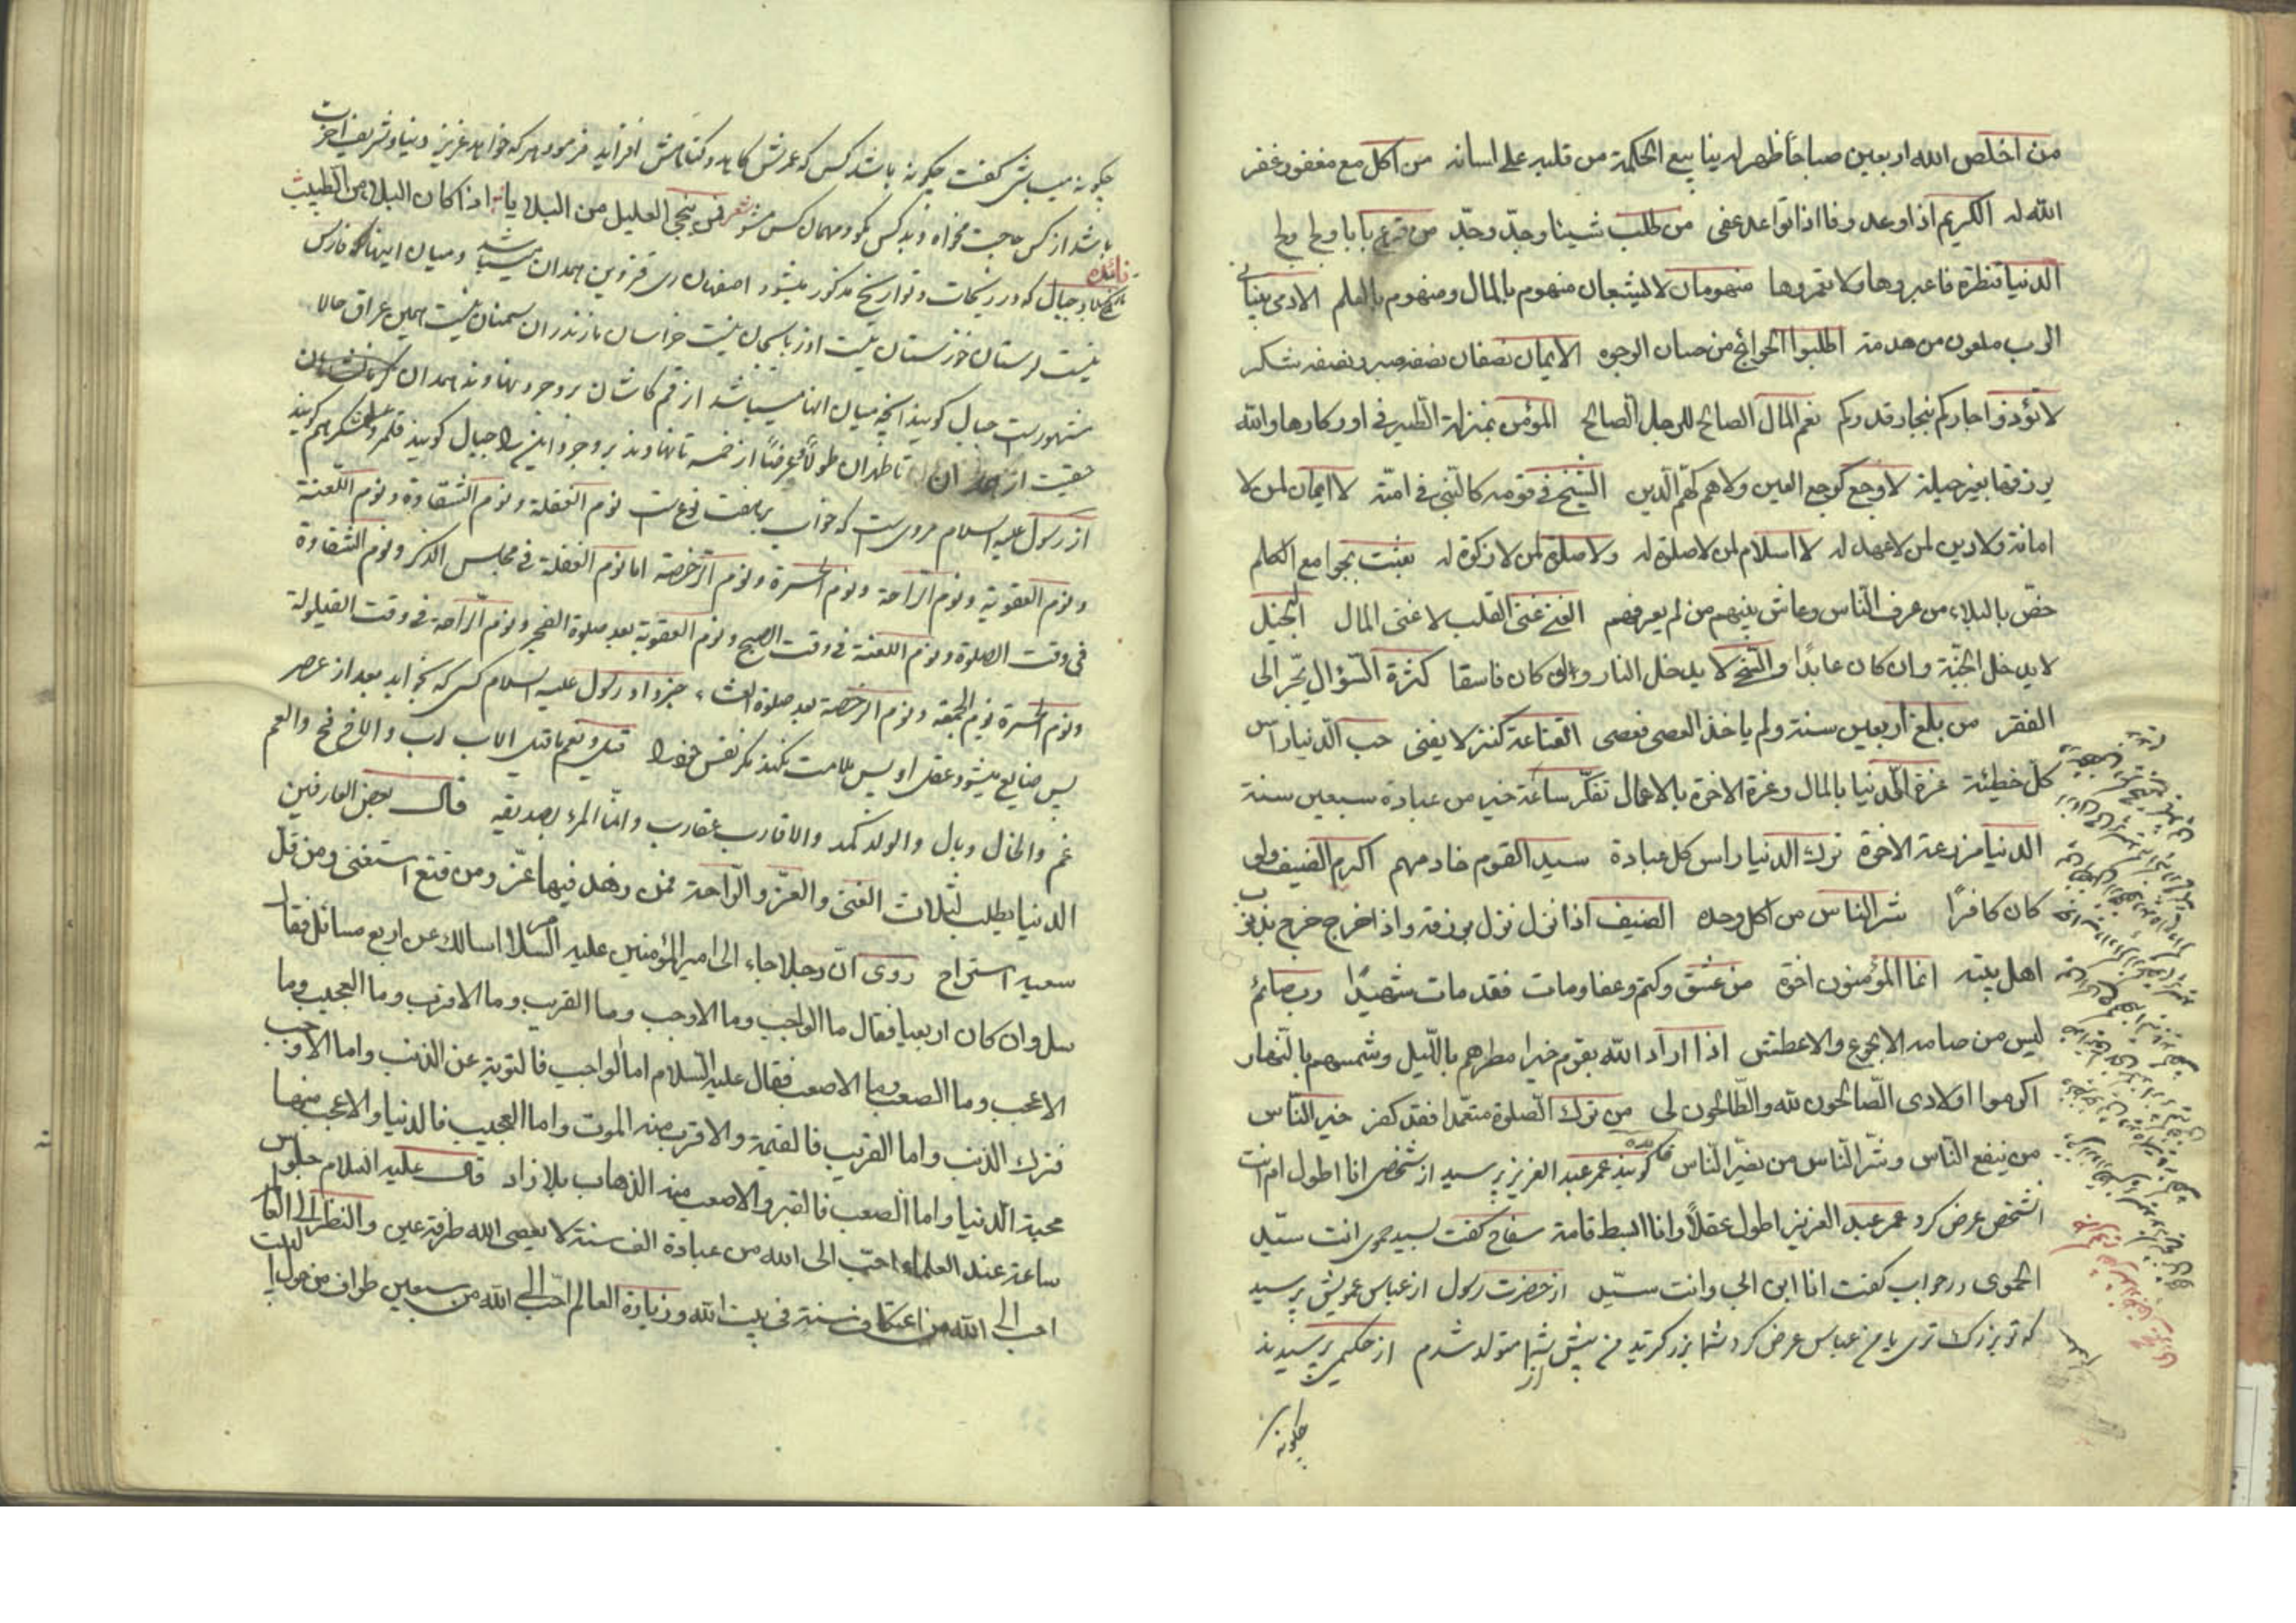 من اخلص الله اربعين صباحا ظهر له ينابيع الحكمة من قلبه على لسانه من اكل مع مغفور غفر
الله له الكريم اذا وعد وفا اذا تواعد عفى من طلب شيئا وجدّ وجدّ من قرع بابا ولج ولج
الدنيا قنطرة فاعبروها ولا تعمروها منهومان لا يشبعان منهوم بالمال ومنهوم بالعلم الادمى بنيان
الرب ملعون من هدمه اطلبوا الحوائج من حسان الوجوه الايمان نصفان نصفه صبر ونصفه شكر
لا تؤذوا جاركم بنجار قدركم نعم المال الصالح للرجل الصالح المؤمن بمنزلة الطير فى اوكارها والله
يرزقها بغير حيلة لا وجع كوجع العين ولا هم كهمّ الدين الشيخ فى قومه كالنبى فى امته لا ايمان لمن لا
امانة ولا دين لمن لا عهد له لا اسلام لمن لا صلوة له ولا صلوة لمن لا زكوة له بعثت بجوامع الكلم
خصّ بالبلاء من عرف الناس وعاش بينهم من لم يعرفهم الغنى غنى القلب لا غنى المال البخيل
لا يدخل الجنّة وان كان عابدًا والسخى لا يدخل النار وان كان فاسقا كثرة السّؤال يجر الى
الفقر من بلغ اربعين سنة ولم ياخذ العصى فعصى القناعة كنز لا يفنى حب الدنيا راس
كل خطيئة عزة الدنيا بالمال وعزة الاخرة بالاعمال تفكّر ساعة خير من عبادة سبعين سنة
الدنيا مزرعة الاخرة ترك الدنيا راس كل عبادة سيد القوم خادمهم اكرم الضيف ولو
كان كافرًا شر الناس من اكل وحده الضيف اذا نزل نزل برزقه واذا خرج خرج بذنوب
اهل بيته انما المؤمنون اخوة من عشق وكتم وعفا ومات فقد مات شهيدًا رب صائم
ليس من صيامه الا الجوع والا عطش اذا اراد الله بقوم خيرا مطرهم بالليل وشمسهم بالنهار
اكرموا اولادى الصّالحون لله والطّالحون لى من ترك الصّلوة متعمّدا فقد كفر خير الناس
من ينفع النّاس وشر النّاس من يضرّ النّاس گويند عمر عبد العزيز پرسيد از شخصى انا اطول ام انت
انشخص عرض كرد عمر عبد العزيز اطول عقلاً وانا ابسط قامة سفاح گفت لسيد حموى انت سيّد
الحموى در جواب گفت انا ابن ابى وانت سيّد از حضرت رسول از عباس عمويش پرسيد
كه تو بزرگ ترى يا من عباس عرض كرد شما بزرگتريد من پيش از شما متولد شدم از حكيمى پرسيدند
چگونه
چگونه ميباشى گفت چگونه باشد كسى كه عمرش كاهد و گناهش افزايد فرمود هر كه خواهد عزيز دنيا و شريف اخرت
باشد از كس حاجت مخواه و بد كس مگو و مهمان كس مشو شعر ينجى العليل من البلاء اذا كان البلاء من الطبيب
فائده
بلاد جبال كه در و تواريخ مذكور ميشود اصفهان رى قزوين همدان ميباشد و ميان اينها كه فارس
نيست لرستان خوزستان نيست اذربايجان نيست خراسان مازندران سمنان نيست همين عراق حالا
مشهور است جبال گويند انچه ميان انها ميباشد از قم كاشان بروجرد نهاوند همدان
تا طهران طولاً وعرضًا از خمسه تا نهاوند بروجرد اين را جبال گويند
از رسول عليه السلام مروى است كه خواب بر هفت نوع است نوم الغفلة ونوم الشقاوة ونوم اللّعنة
ونوم العقوبة ونوم الراحة ونوم الحسرة ونوم الرخصة اما نوم الغفلة فى مجلس الذكر ونوم الشقاوة
فى وقت الصلوة ونوم اللعنة فى وقت الصبح ونوم العقوبة بعد صلوة الفجر ونوم الرّاحة فى وقت القيلولة
ونوم الحسرة يوم الجمعة ونوم الرخصة بعد صلوة العشاء خبر داد رسول عليه السلام كسى كه بخوابد بعد از عصر
پس ضايع ميشود عقل او پس ملامت نكند مگر نفس خود را قيل ونعم ما قيل الاب رب والاخ فخ والعم
غم والخال وبال والولد كمد والاقارب عقارب وانّما المرء بصديقه قال بعض العارفين
الدنيا يطلب لثلاث الغنى والعزّ والرّاحة فمن زهد فيها عزّ ومن قنع استغنى ومن قلّ
سعيه استراح روى ان رجلا جاء الى امير المؤمنين عليه السلام اسالك عن اربع مسائل فقال
سل وان كان اربعيا فقال ما الواجب وما الاوجب وما القريب وما الاقرب وما العجيب وما
الاعجب وما الصعب وما الاصعب فقال عليه السّلام اما الواجب فالتوبة عن الذنب واما الاوجب
فترك الذنب واما القريب فالقيمة والاقرب منه الموت واما العجيب فالدنيا والاعجب منها
محبة الدّنيا واما الصعب فالقبر والاصعب منه الذهاب بلا زاد قال عليه السلام جلوس
ساعة عند العلماء احبّ الى الله من عبادة الف سنة لا يعصى الله طرفة عين والنظر الى العالم
احب الى الله من اعتكاف سنة فى بيت الله وزيارة العالم احبّ الى الله من سبعين طواف من حول البيت